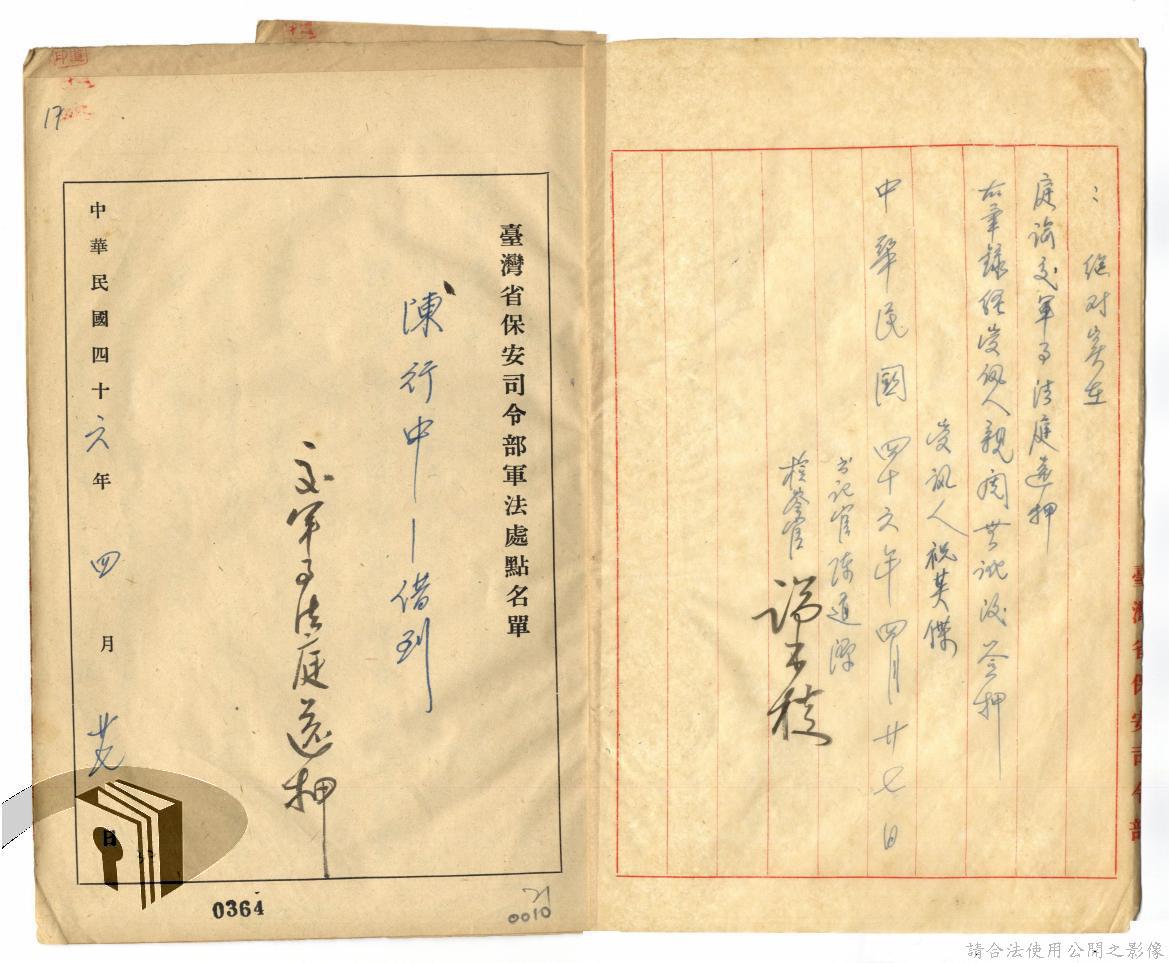 ：絕对实在
庭諭交軍事法庭還押
右筆錄經受訊人親閱無訛後簽押
受訊人祝英傑
中華民國四十六年四月廿七日
书记官陈道
檢察官
臺灣省保安司令部
臺灣省保安司令部軍法處點名單
陳行中－借到
交軍事法庭還押
中華民國四十六年四月日
17
0364
21
0010
請合法使用公開之影像